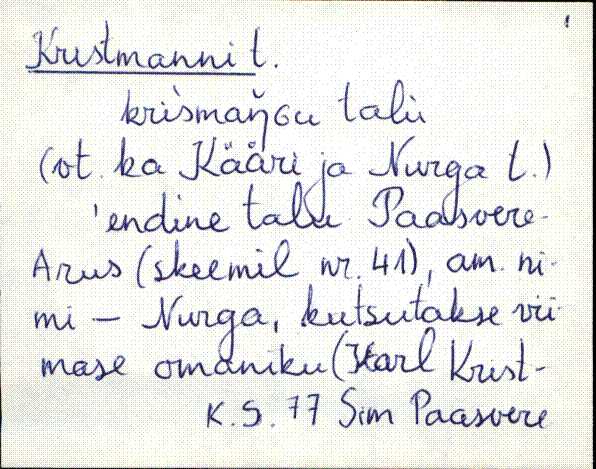 Kristmanni t.
krìsmaŋ̆ɢu talu
(vt. ka Kääri ja Nurga t.)
'endine talu Paasvere-
Arus (skeemil nr. 41), am. ni-
mi – Nurga, kutsutakse vii-
mase omaniku (Karl Krist-
K. S. 77 Sim Paasvere